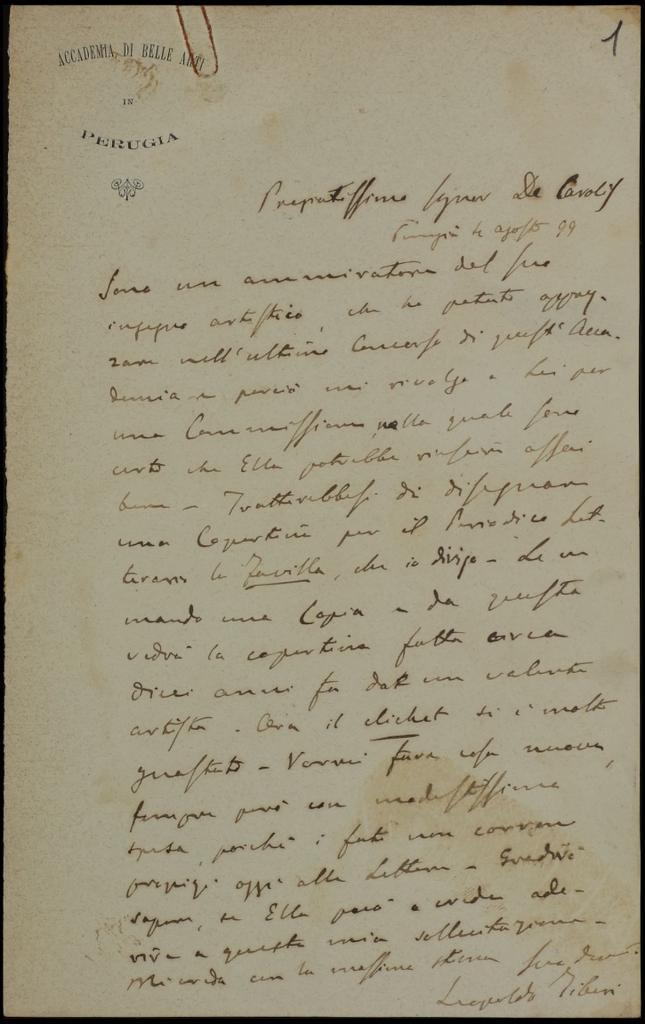 1
ACCADEMIA DI BELLE ARTI
IN
PERUGIA
Pregiatissimo Signor De Carolis
Perugia 4 agosto 99
Sono un ammiratore del suo
ingegno artistico, che ho potuto apprez-
zare nell'ultimo Concorso di quest'Acca-
demia e perciò mi rivolgo a Lei per
una Commissione, nella quale sono
certo che Ella potrebbe riuscire assai
bene – Tratterebbesi di disegnare
una Copertina per il Periodico Let-
terario la Favilla, che io dirigo – Le ne
mando una Copia e da questa
vedrà la copertina fatta circa
dieci anni fa da un valente
artista. Ora il clichet si è molto
guastato – Vorrei fare cosa nuova,
sempre però con modestissima
spesa, poichè i fati non corrono
propizi oggi alle Lettere – Gradirei
sapere, se Ella può e crede ade-
rire a questa mia sollecitazione –
Mi creda con la massima stima Suo dev.
Leopoldo Tiberi